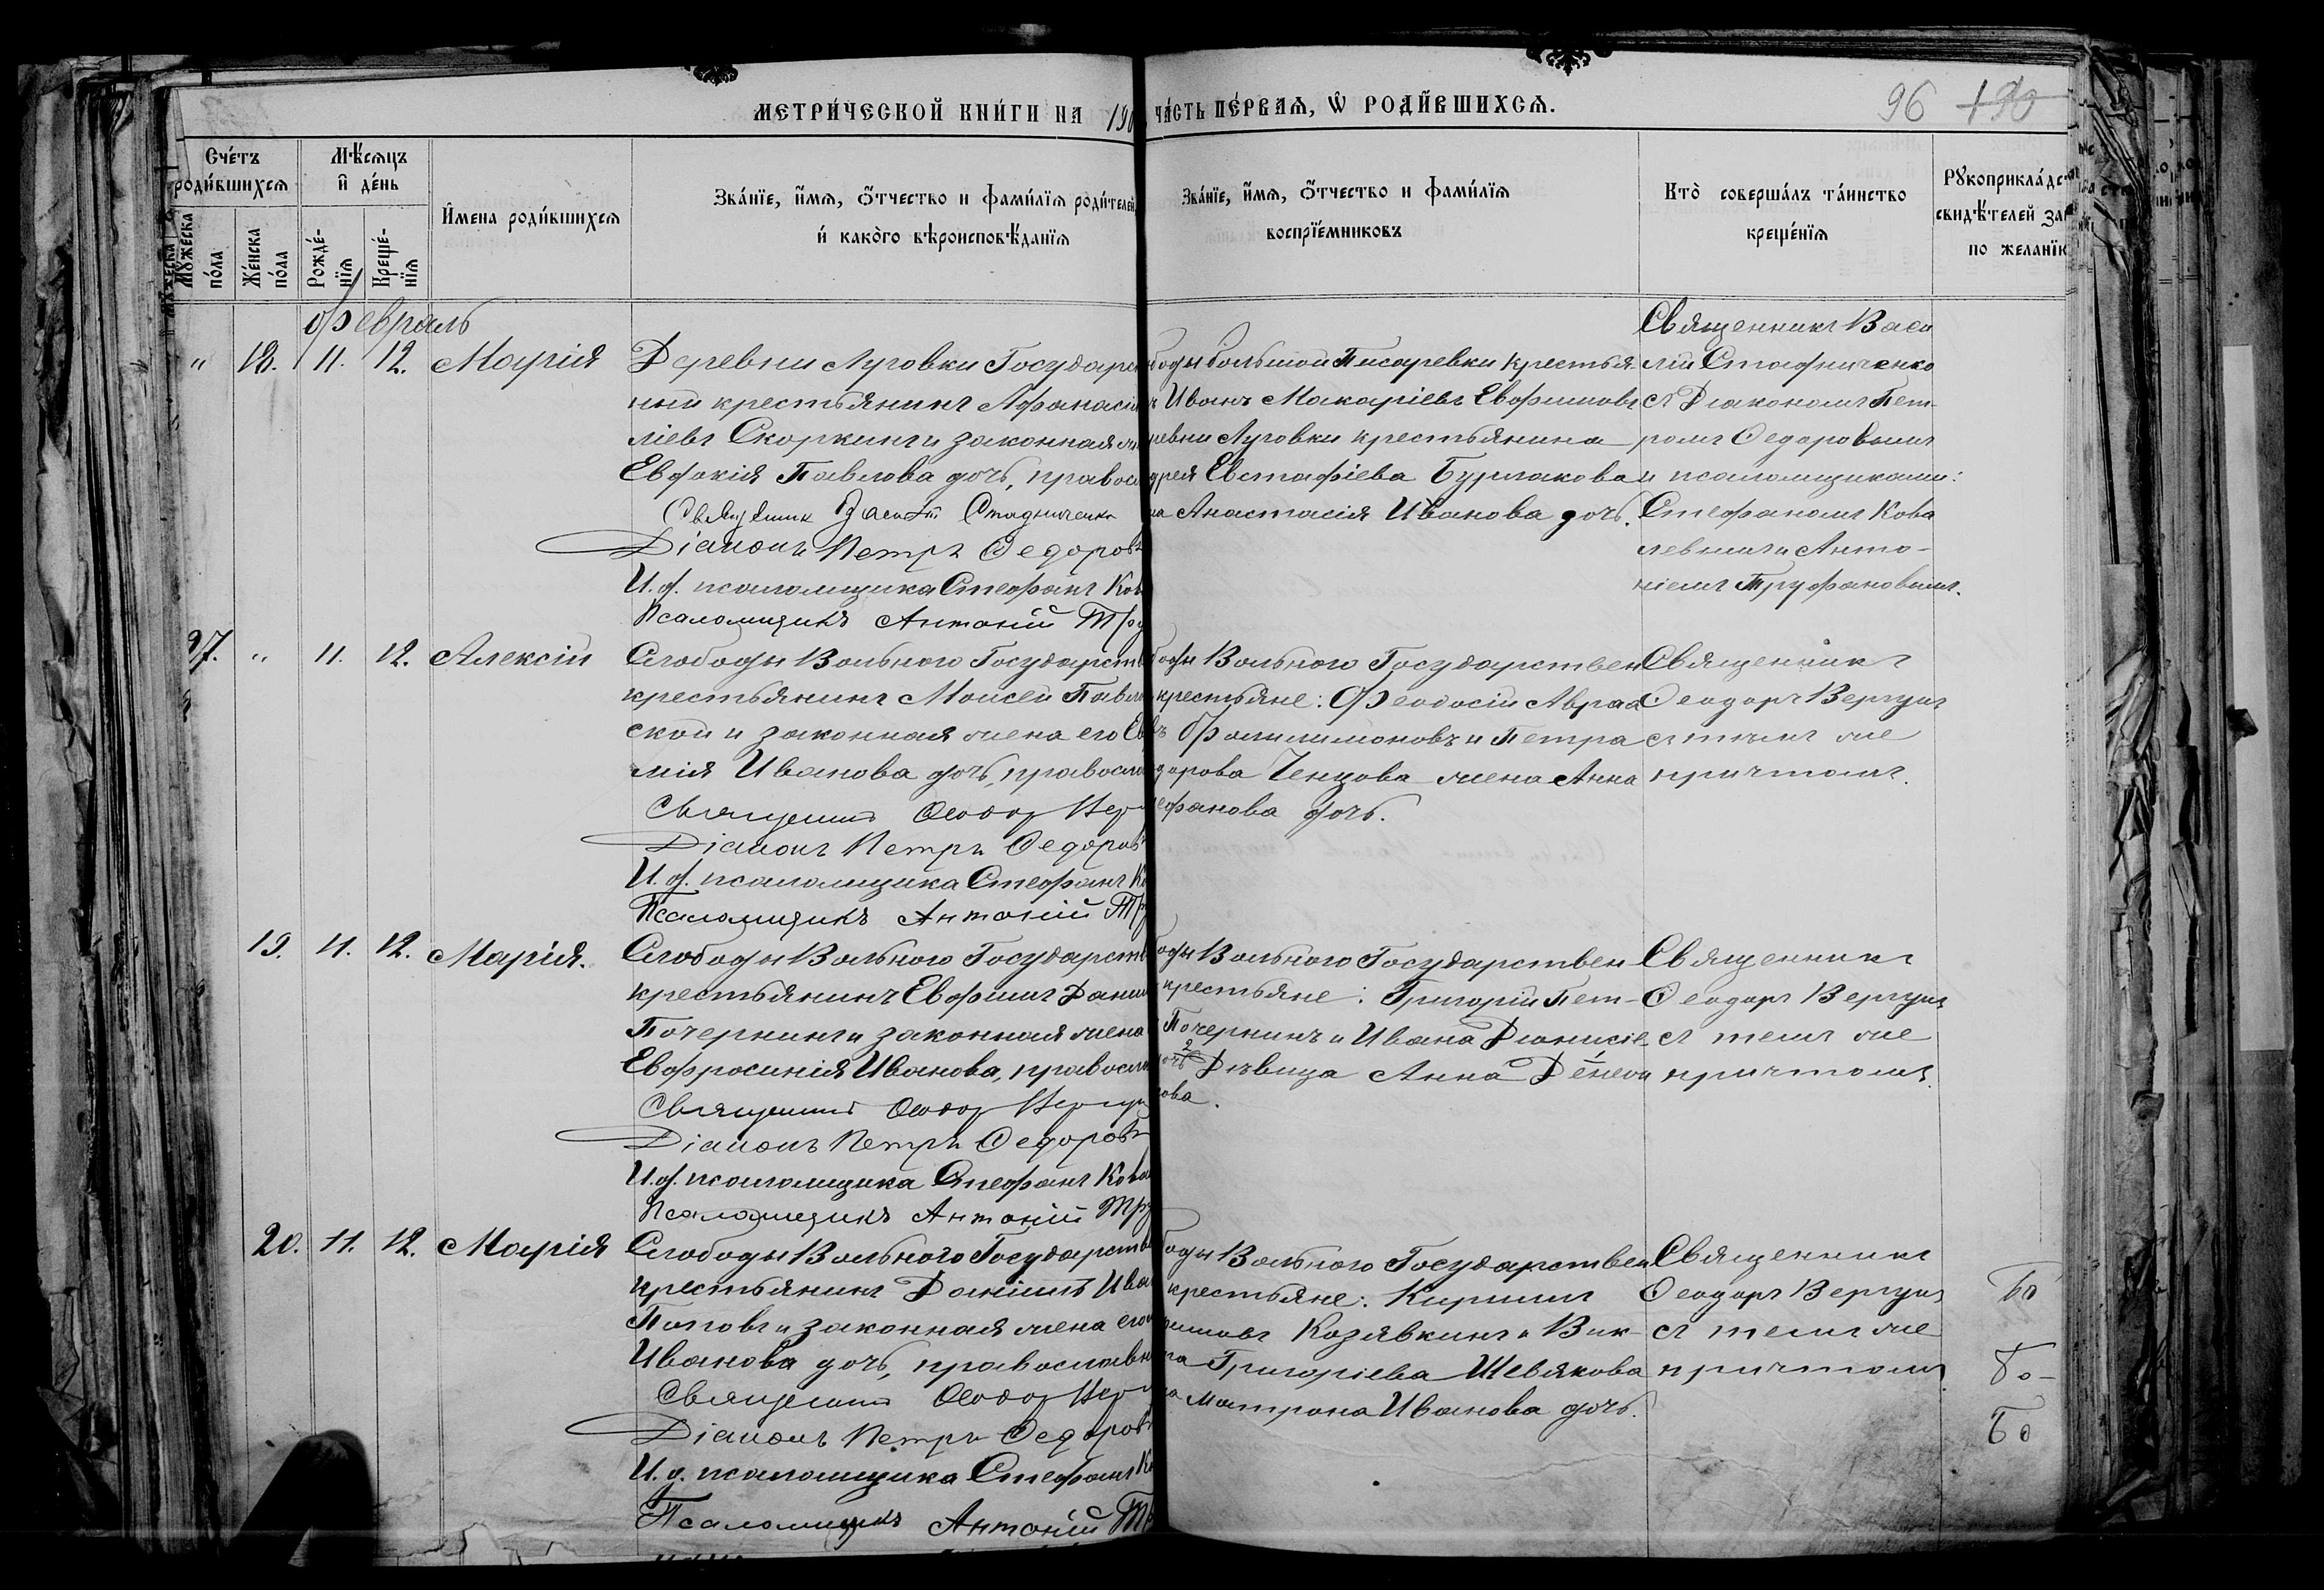 МЕТРИ́ЧЕСКОЙ КНИ́ГИ НА 190
ЧА́СТЬ ПЕ́РВАѦ, Ѡ҆ РОДИ́ВШИХСѦ.
96 190
Сче́тъ родившихсѧ
Мѣ́сѧцъ и҆ де́нь
Мꙋ́жеска по́ла
Же́нска по́ла
Рожде́-нїѧ
Креще́-нїѧ
И҆мена роди́вшихсѧ
Зва́нїе, и҆́мѧ, ѻ҆́тчество и фами́лїѧ роди́телей,
и҆ како́го вѣроисповѣ́данїѧ
Зва́нїе, и҆́мѧ, ѻ҆́тчество и фами́лїѧ
воспрїе́мниковъ
Кто̀ соверша́лъ та́инство
креще́нїѧ
Рꙋкоприкла́дс
свидѣ́телей за
по желанїю
Февраль
" 18. 11. 12. Марія
Деревни Луговки Государс
ный крестьянинъ Афанасій
ліевъ Скоркинъ и законная
Евдокія Павлова дочь, правос
Священник Василій Стадниченко
Діаконъ Петръ Ѳедоровъ
И. д. псаломщика Стефанъ Ков
Псаломщикъ Антоній Тру
боды Большой Писаревки крестья-
Иванъ Макаріевъ Евфимовъ
ревни Луговки крестьянина
дрея Евстафіева Бурлакова
на Анастасія Иванова дочь.
Священникъ Васи
лій Стадниченко
съ Діакономъ Пет-
ромъ Ѳедоровымъ
и псаломщиками:
Стефаномъ Кова
левымъ и Анто-
ніемъ Труфановымъ.
27. " 11. 12. Алексій
Слободы Вольного Государств
крестьянинъ Моисей Павл
ской и законная жена его Ев
мія Иванова дочь, правосла
Священник Ѳеодор Вер
Діаконъ Петръ Ѳедоровъ
И. д. псаломщика Стефанъ К
Псаломщикъ Антоній Тр
боды Вольного Государствен
крестьяне: Феодосій Авраа
Филимоновъ и Петра
дорова Ченцова жена Анна
ефанова дочь.
Священникъ
Ѳеодоръ Вергунъ
съ тѣмъ же
причтомъ.
19. 11. 12. Марія.
Слободы Вольного Государств
крестьянинъ Евфимъ Дани
Почернинъ и законная жена
Евфросинія Иванова, правосл
Священник Ѳеодор Вергун
Діаконъ Петръ Ѳедоровъ
И. д. псаломщика Стефанъ Кова
Псаломщикъ Антоній Тру
боды Вольного Государствен
крестьяне: Григорій Пет-
Почернинъ и Ивана Діонисіе-
Дѣвица Анна
ова.
Священникъ
Ѳеодоръ Вергунъ
съ темъ же
причтомъ.
20. 11. 12. Марія
Слободы Вольного Государств
крестьянинъ Даніилъ Ива
Поповъ и законная жена его
Иванова дочь, православн
Священник Ѳеодор Вер
Діаконъ Петръ Ѳедоровъ
И. д. псаломщика Стефанъ К
Псаломщикъ Антоній Т
боды Вольного Государствен
крестьяне: Кирилъ
Козявкинъ и Вик-
ра Григоріева Шевякова
на Матрона Иванова дочь.
Священникъ
Ѳеодоръ Вергунъ
съ темъ же
причтомъ